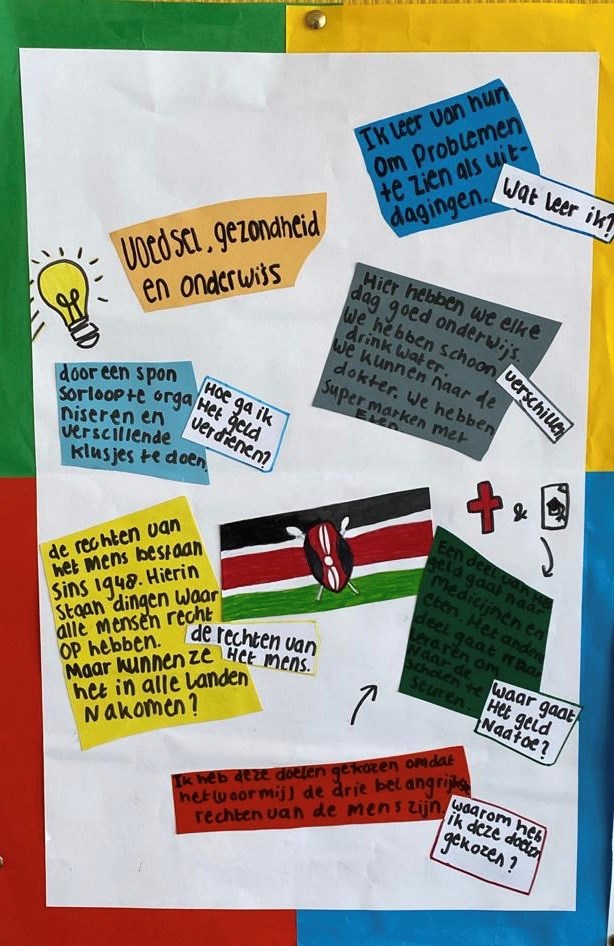 Ik leer van hun
om problemen
te zien als uit-
dagingen.
wat leer ik?
Voedsel, gezondheid
en onderwijs
Hier hebben we elke
dag goed onderwijs.
We hebben schoon
drinkwater.
We kunnen naar de
dokter. We hebben
supermarken met
Eten
verschillen
door een spon
sorloop te orga
niseren en
verscillende
klusjes te doen
Hoe ga ik
Het geld
verdienen?
de rechten van
het mens bestaan
sins 1948. Hierin
Staan dingen waar
alle mensen recht
op hebben.
Maar kunnen ze
het in alle landen
Nakomen?
de rechten van
Het mens.
&
Een deel van het
geld gaat naar
medicijnen en
eten. Het andre
deel gaat naar
leraren om
Naar de
scholen te
sturen.
waar gaat
Het geld
Naatoe?
Ik heb deze doelen gekozen omdat
het (voor mij) de drie belangrijkste
rechten van de mens zijn.
waarom heb
ik deze doelen
gekozen?